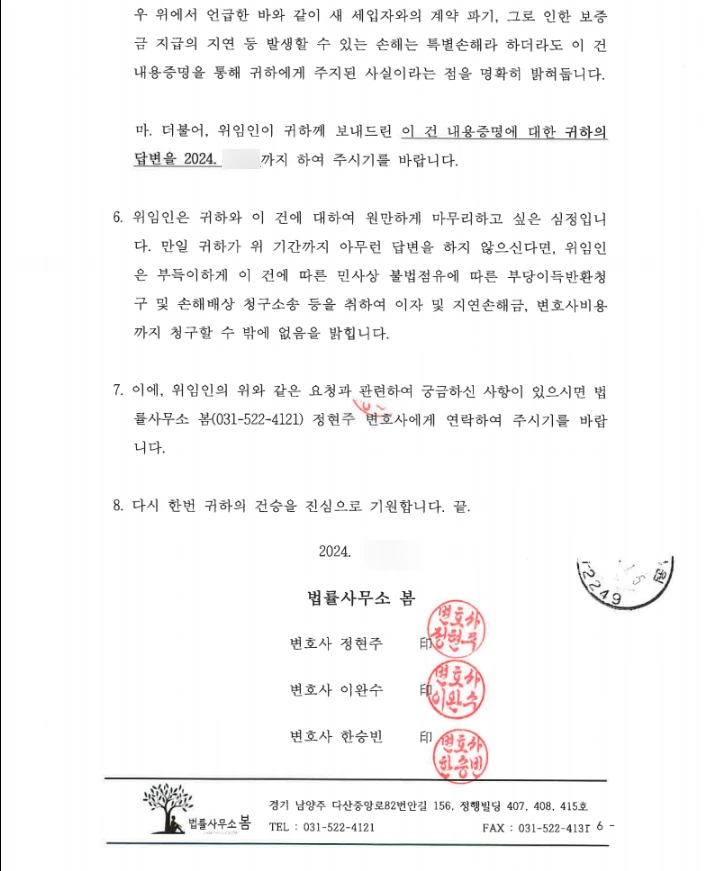 우 위에서 언급한 바와 같이 새 세입자와의 계약 파기, 그로 인한 보증
금 지급의 지연 등 발생할 수 있는 손해는 특별손해라 하더라도 이 건
내용증명을 통해 귀하에게 주지된 사실이라는 점을 명확히 밝혀둡니다.
마. 더불어, 위임인이 귀하께 보내드린 이 건 내용증명에 대한 귀하의
답변을 2024. 까지 하여 주시기를 바랍니다.
6. 위임인은 귀하와 이 건에 대하여 원만하게 마무리하고 싶은 심정입니
다. 만일 귀하가 위 기간까지 아무런 답변을 하지 않으신다면, 위임인
은 부득이하게 이 건에 따른 민사상 불법점유에 따른 부당이득반환청
구 및 손해배상 청구소송 등을 취하여 이자 및 지연손해금, 변호사비용
까지 청구할 수 밖에 없음을 밝힙니다.
7. 이에, 위임인의 위와 같은 요청과 관련하여 궁금하신 사항이 있으시면 법
률사무소 봄(031-522-4121) 정현주 변호사에게 연락하여 주시기를 바랍
니다.
8. 다시 한번 귀하의 건승을 진심으로 기원합니다. 끝.
2024.
12249
법률사무소 봄
변호사 정현주 印
변호사 정현주
변호사 이완수 印
변호사 이완수
변호사 한승빈 印
변호사 한승빈
법률사무소봄
경기 남양주 다산중앙로82번안길 156, 정행빌딩 407, 408, 415호
TEL : 031-522-4121 FAX : 031-522-4131 6 -